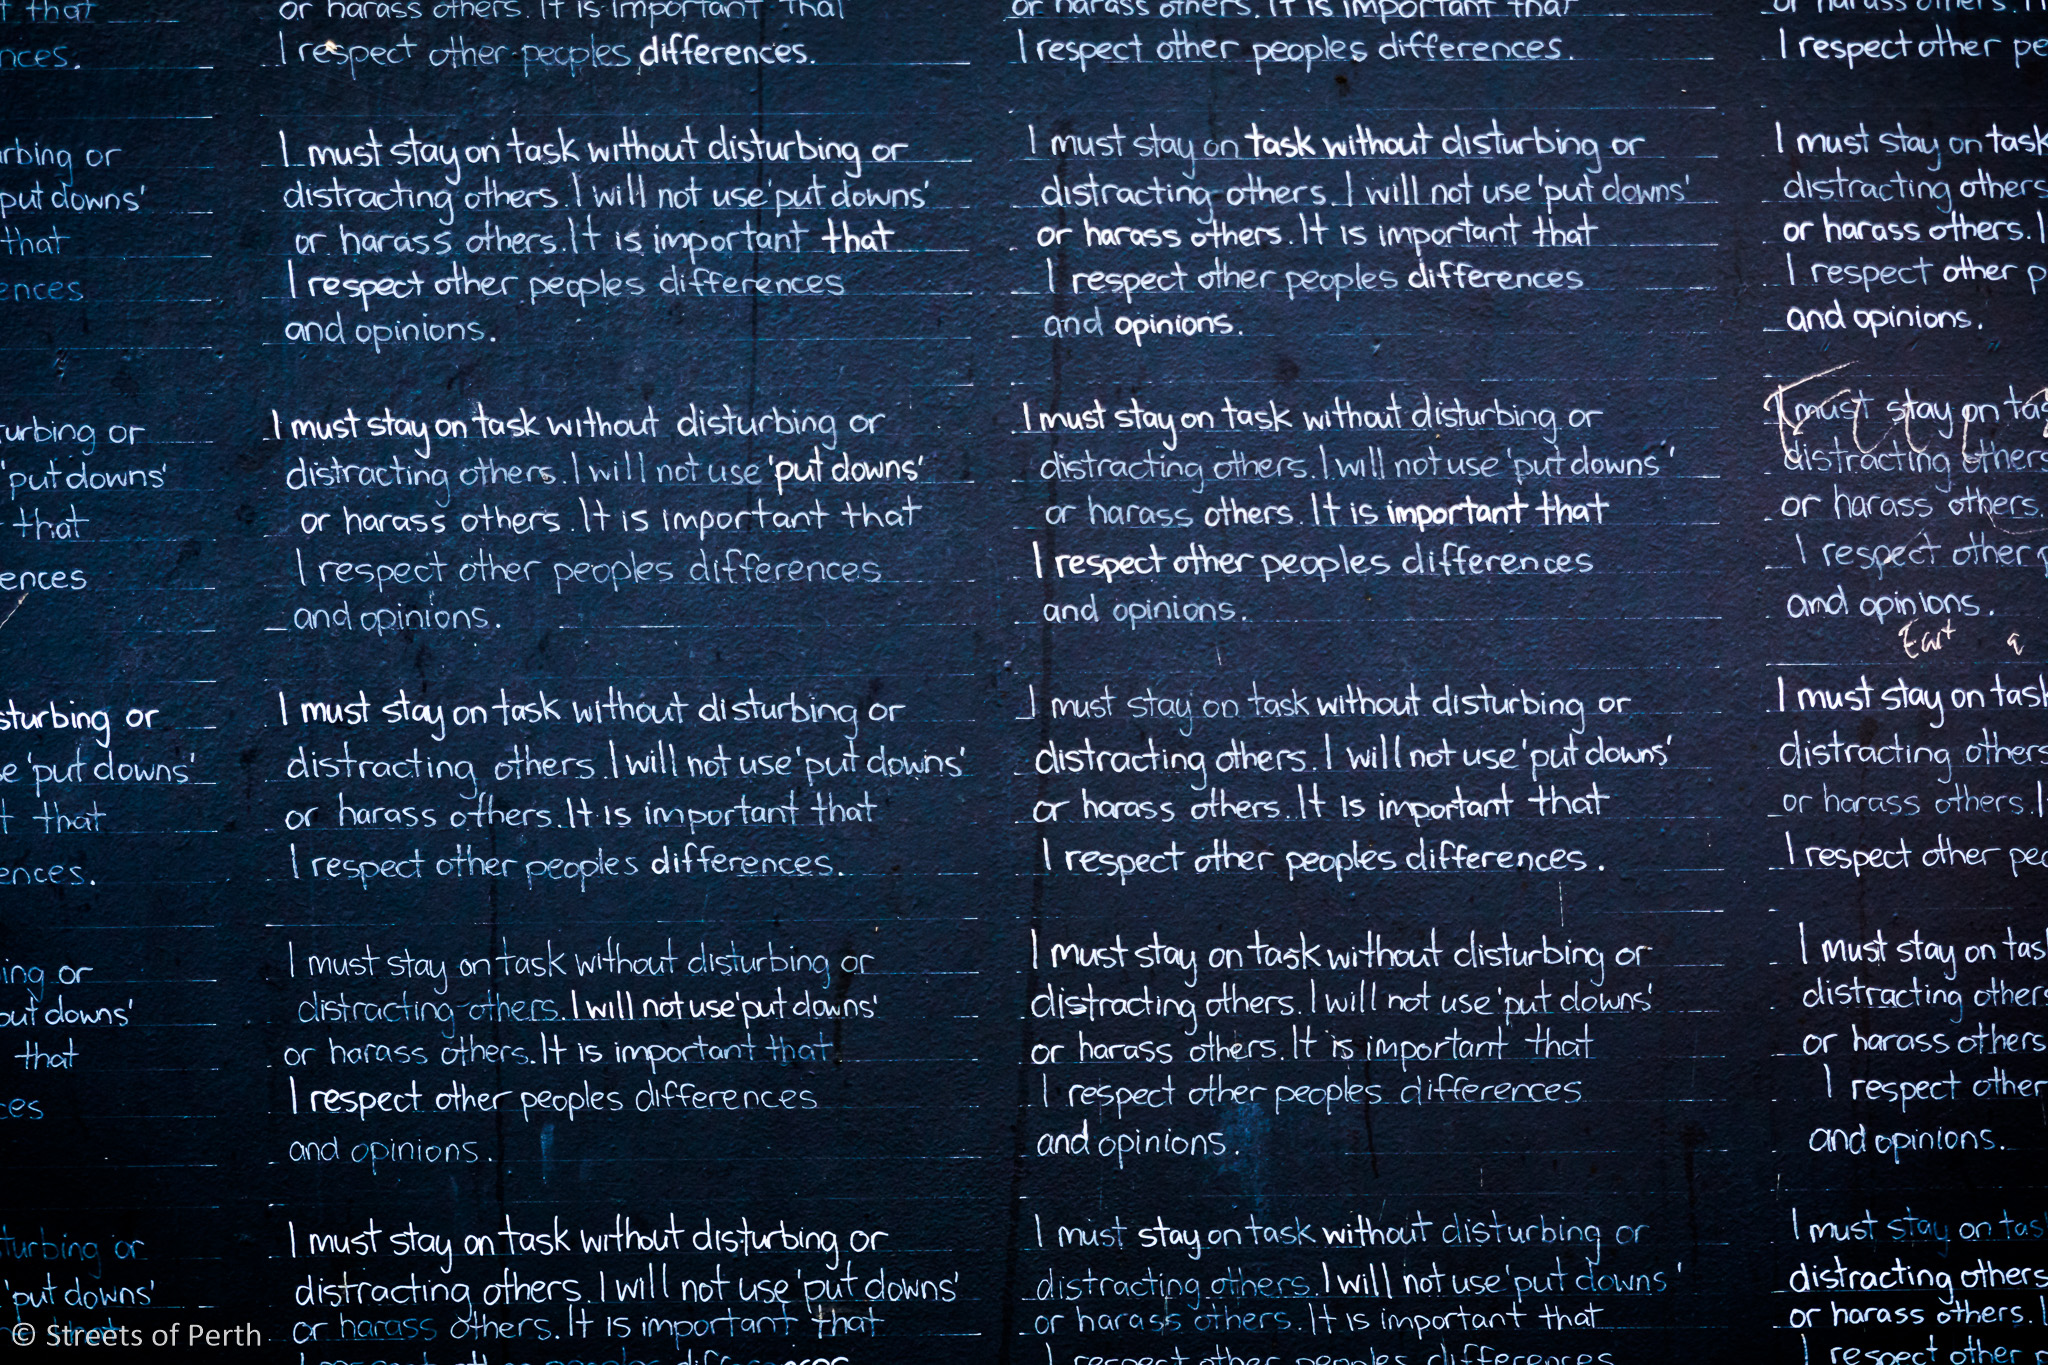 t that
nces.
rbing or
put downs'
that
ences
urbing or
'put downs'
that
ences
sturbing or
se 'put downs'
t that
ences.
ing or
out downs'
that
ces
turbing or
'put downs'
or harass others. It is important that
I respect other peoples differences.
I must stay on task without disturbing or
distracting others. I will not use 'put downs'
or harass others. It is important that
I respect other peoples differences
and opinions.
I must stay on task without disturbing or
distracting others. I will not use 'put downs'
or harass others. It is important that
I respect other peoples differences
and opinions.
I must stay on task without disturbing or
distracting others. I will not use 'put downs'
or harass others. It is important that
I respect other peoples differences.
I must stay on task without disturbing or
distracting others. I will not use 'put downs'
or harass others. It is important that
I respect other peoples differences
and opinions.
I must stay on task without disturbing or
distracting others. I will not use 'put downs'
or harass others. It is important that
or harass others. It is important that
I respect other peoples differences.
I must stay on task without disturbing or
distracting others. I will not use 'put downs'
or harass others. It is important that
I respect other peoples differences
and opinions.
I must stay on task without disturbing or
distracting others. I will not use 'put downs'
or harass others. It is important that
I respect other peoples differences
and opinions.
I must stay on task without disturbing or
distracting others. I will not use 'put downs'
or harass others. It is important that
I respect other peoples differences.
I must stay on task without disturbing or
distracting others. I will not use 'put downs'
or harass others. It is important that
I respect other peoples differences
and opinions.
I must stay on task without disturbing or
distracting others. I will not use 'put downs'
or harass others. It is important that
I respect other peoples differences
or harass others. I
I respect other pe
I must stay on task
distracting others
or harass others. I
I respect other p
and opinions.
I must stay on tas
distracting others
or harass others.
I respect other p
and opinions.
I must stay on task
distracting others
or harass others. I
I respect other peo
I must stay on tas
distracting others
or harass others
I respect other
and opinions.
I must stay on tas
distracting others
or harass others. I
I respect other p
© Streets of Perth